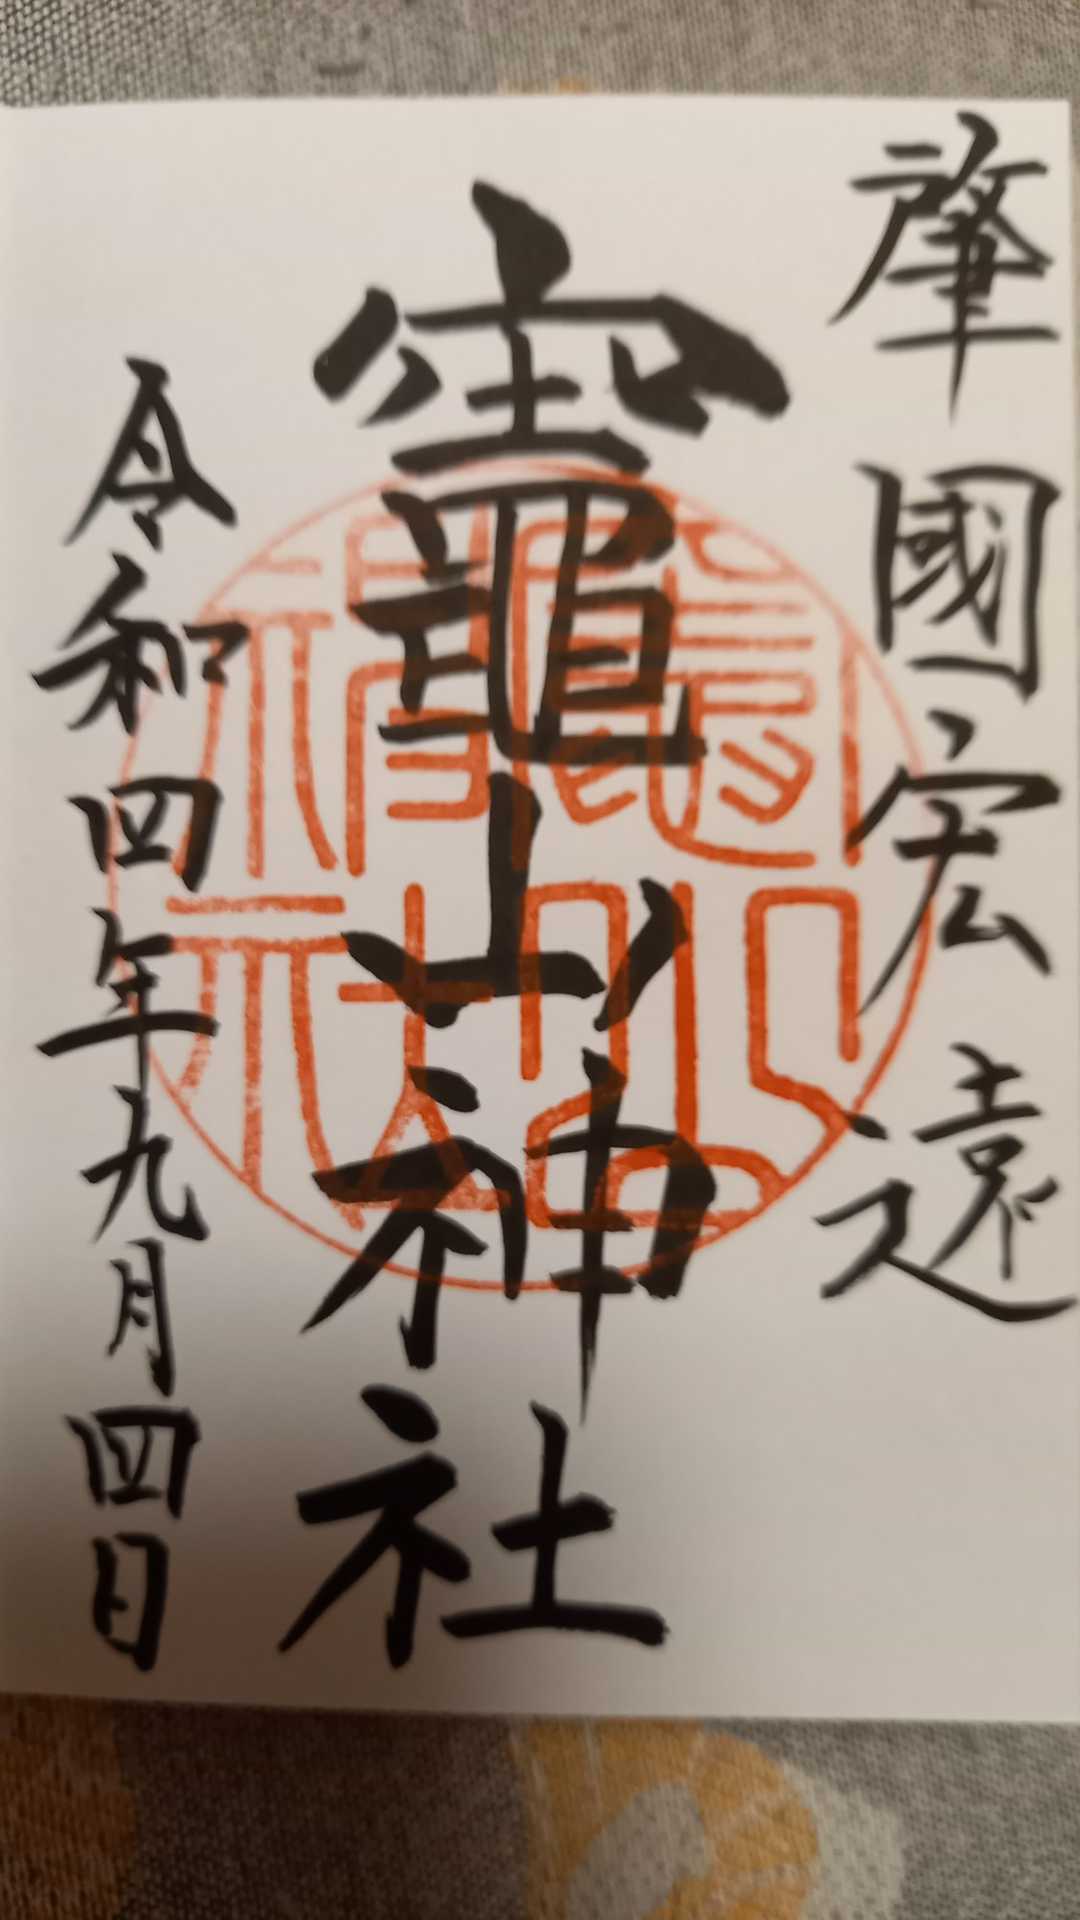 肇國宏遠
竈山神社
令和四年九月四日